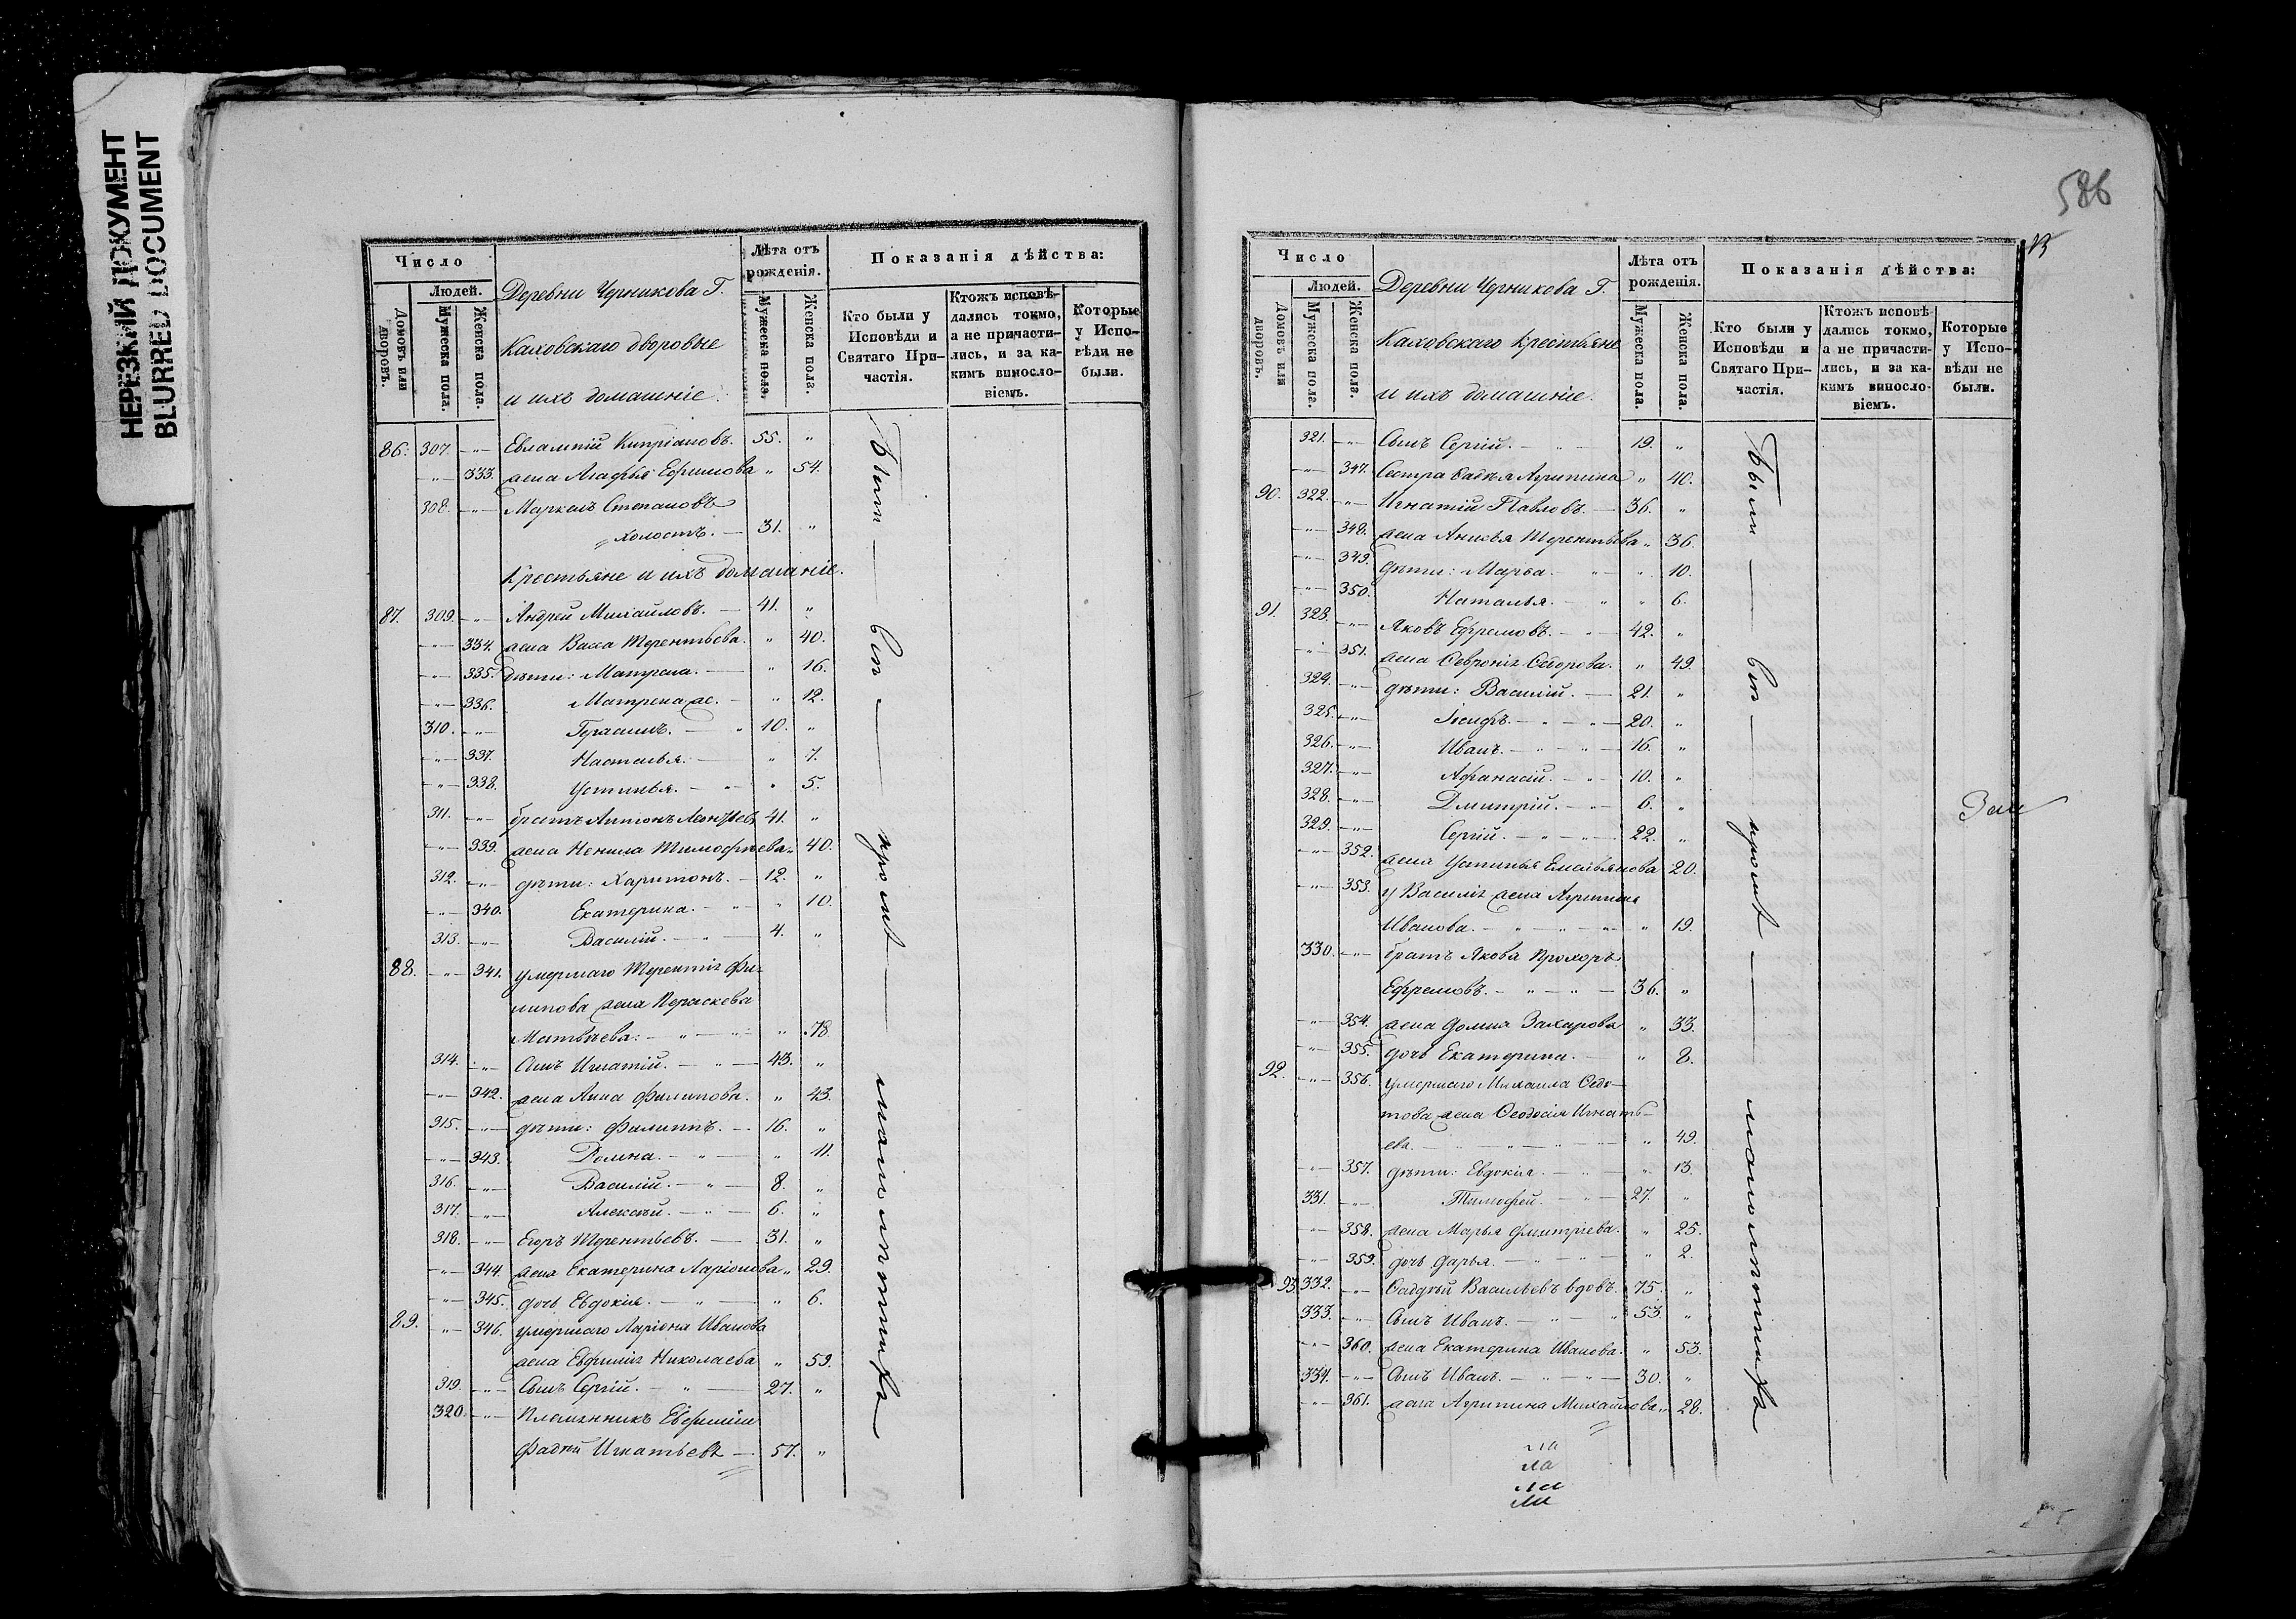 НЕРЕЗКИЙ ДОКУМЕНТ
BLURRED DOCUMENT
Число
Людей.
Домовъ или дворовъ.
Мужеска пола.
Женска пола.
Деревни Черникова Г.
Каховскаго дворовые
и ихъ домашніе.
Лѣта отъ рожденія.
Мужеска пола.
Женска пола.
Показанія дѣйства:
Кто были у Исповѣди и Святаго Причастія.
Ктожъ исповѣдались токмо, а не причастились, и за какимъ винословіемъ.
Которые у Исповѣди не были.
86. 307. -"- Евлампій Кипріановъ. 55. "
-"- 333. жена Агафья Ефимова " 54.
308. -"- Маркелъ Степановъ
холостъ. — 31. "
Крестьяне и ихъ домашніе.
87. 309. -"- Андрей Михайловъ. — 41. "
-"- 334. жена Васса Терентьева. " 40.
-"- 335. дѣти: Матрена. — " 16.
-"- 336. Матрена же. — " 12.
310. -"- Герасимъ. — " 10. "
-"- 337. Наталья. — " 7.
-"- 338. Устинья. — " — " 5.
311. -"- братъ Антонъ Леонтьевъ 41. "
-"- 339. жена Ненила Тимофѣева " 40.
312. -"- дѣти: Харитонъ. — 12. "
-"- 340. Екатерина. — " — " 10.
313. -"- Василій. — " — 4. "
88. -"- 341. умершаго Терентія Фи-
липова жена Параскева
Матвѣева: — " — " — " 78.
314. -"- Сынъ Игнатій. — " — 43. "
-"- 342. жена Анна Филипова. " 43.
315. -"- дѣти: Филиппъ. — 16. "
-"- 343. Домна. — " — " 11.
316. -"- Василій. — " — 8. "
317. -"- Алексѣй. — " — 6. "
318. -"- Егоръ Терентьевъ. — 31. "
-"- 344. жена Екатерина Ларіонова " 29.
-"- 345. дочь Евдокія. — " — " 6.
89. -"- 346. умершаго Ларіона Иванова
жена Евфимія Николаева " 59.
319. -"- Сынъ Сергій. — " — 27. "
320. -"- Племянникъ Евфиміи
Фадѣй Игнатьевъ — 57. "
Были — вси — кромѣ — малолѣтнихъ
586
Число
Людей.
Домовъ или дворовъ.
Мужеска пола.
Женска пола.
Деревни Черникова Г.
Каховскаго крестьяне
и ихъ домашніе.
Лѣта отъ рожденія.
Мужеска пола.
Женска пола.
Показанія дѣйства:
Кто были у Исповѣди и Святаго Причастія.
Ктожъ исповѣдались токмо, а не причастились, и за какимъ винословіемъ.
Которые у Исповѣди не были.
321. -"- Сынъ Сергій. — " — 19. "
-"- 347. Сестра Фадѣя Агрипина " 40.
90. 322. -"- Игнатій Павловъ. — 36. "
-"- 348. жена Анисья Терентьева " 36.
-"- 349. дѣти: Марѳа. — " — " 10.
-"- 350. Наталья. — " " 6.
91. 323. -"- Яковъ Ефремовъ. — " — 42. "
-"- 351. жена Февронія Сидорова. " 49.
324. -"- дѣти: Василій. — 21. "
325. -"- Іосифъ. — " — " — 20. "
326. -"- Иванъ. — " — " — 16. "
327. -"- Афанасій. — " — 10. "
328. -"- Дмитрій. — " — 6. "
329. -"- Сергій. — " — " — 22. "
-"- 352. жена Устинья Емельянова 20.
-"- 353. у Василія жена Агрипина
Иванова. — " — " — " — " 19.
330. -"- братъ Якова Прохоръ
Ефремовъ. — " — " — 36. "
-"- 354. жена Домна Захарова " 33.
-"- 355. дочь Екатерина. — " 8.
92. -"- 356. умершаго Михаила Ѳедо-
това жена Ѳеодосія Игнать-
ева. — " — " — " — " 49.
-"- 357. дѣти: Евдокія. — " — " 13.
331. -"- Тимофей. — " — 27. "
-"- 358. жена Марья Дмитріева. " 25.
-"- 359. дочь Дарья. — " — " — " 2.
93. 332. -"- Ѳаддѣй Васильевъ вдовъ. 75. "
333. -"- Сынъ Иванъ. — " — " 53. "
-"- 360. жена Екатерина Иванова. " 53.
334. -"- Сынъ Иванъ. — " — " — 30. "
-"- 361. жена Агрипина Михайлова. " 28.
Были — вси — кромѣ — малолѣтнихъ